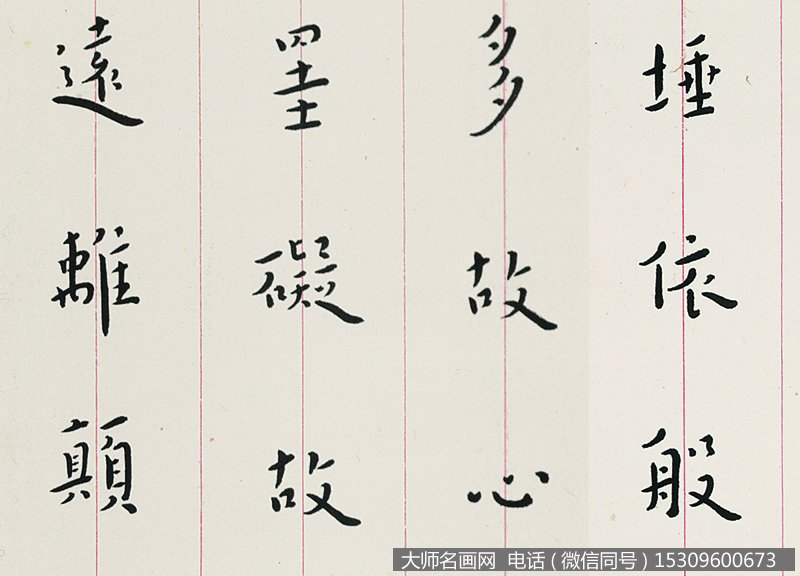 埵依般
多故心
罣礙故
遠離顛
大师名画网 电话（微信同号）15309600673